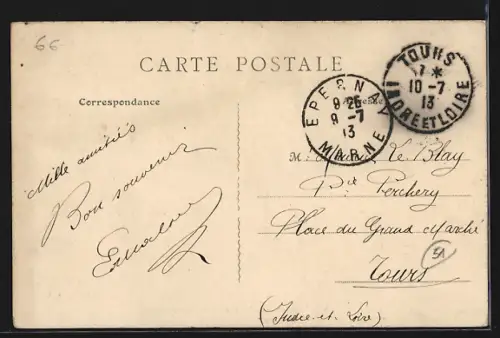 66
CARTE POSTALE
Correspondance
Mille amitiés
Bon souvenir
EPERNAY
9-7
13
MARNE
TOURS
7 *
10-7
13
INDRE ET LOIRE
M. Le Blay
Place du Grand Marché
Tours
51
(Indre-et-Loire)